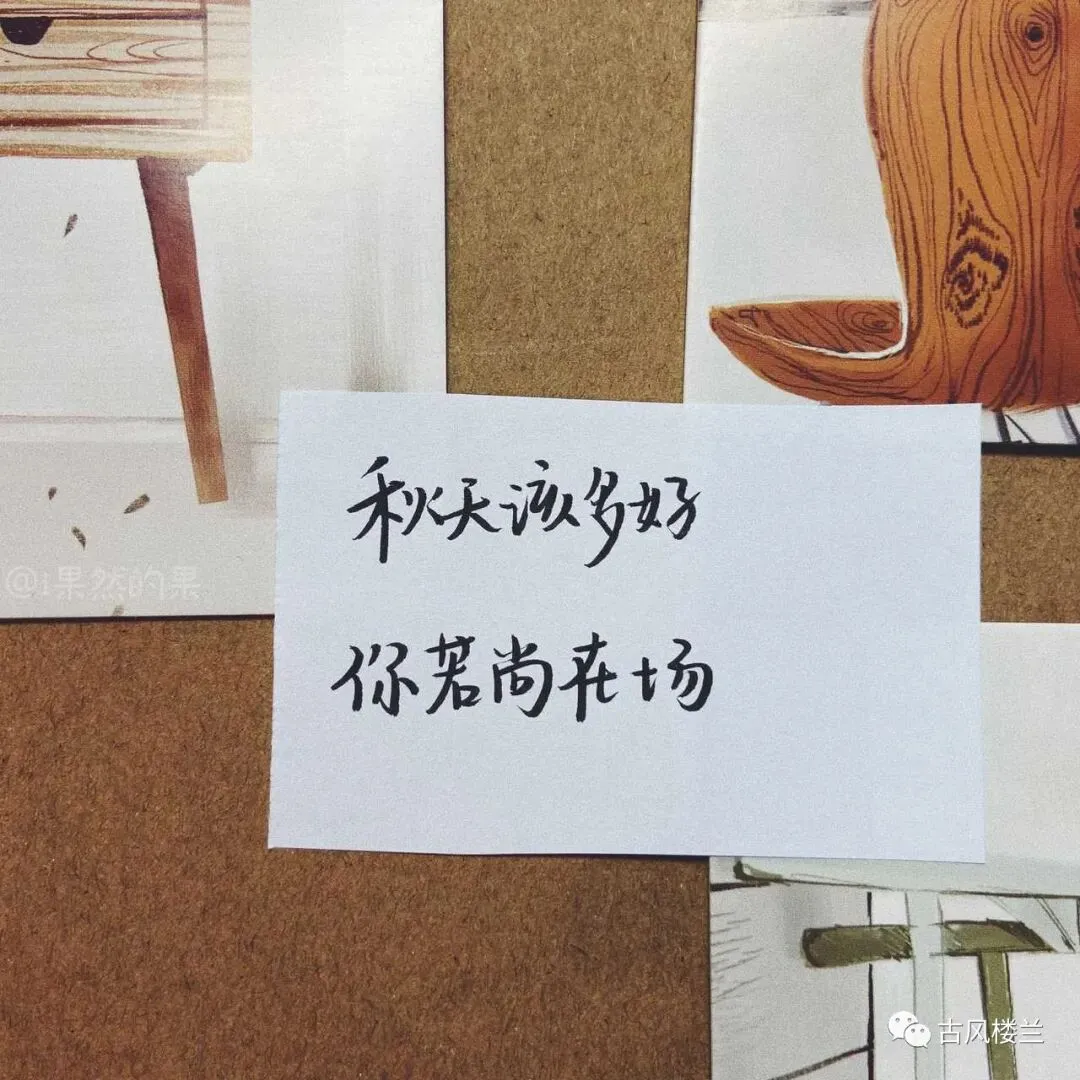 秋天该多好
你若尚在场
@i果然的果
古风楼兰